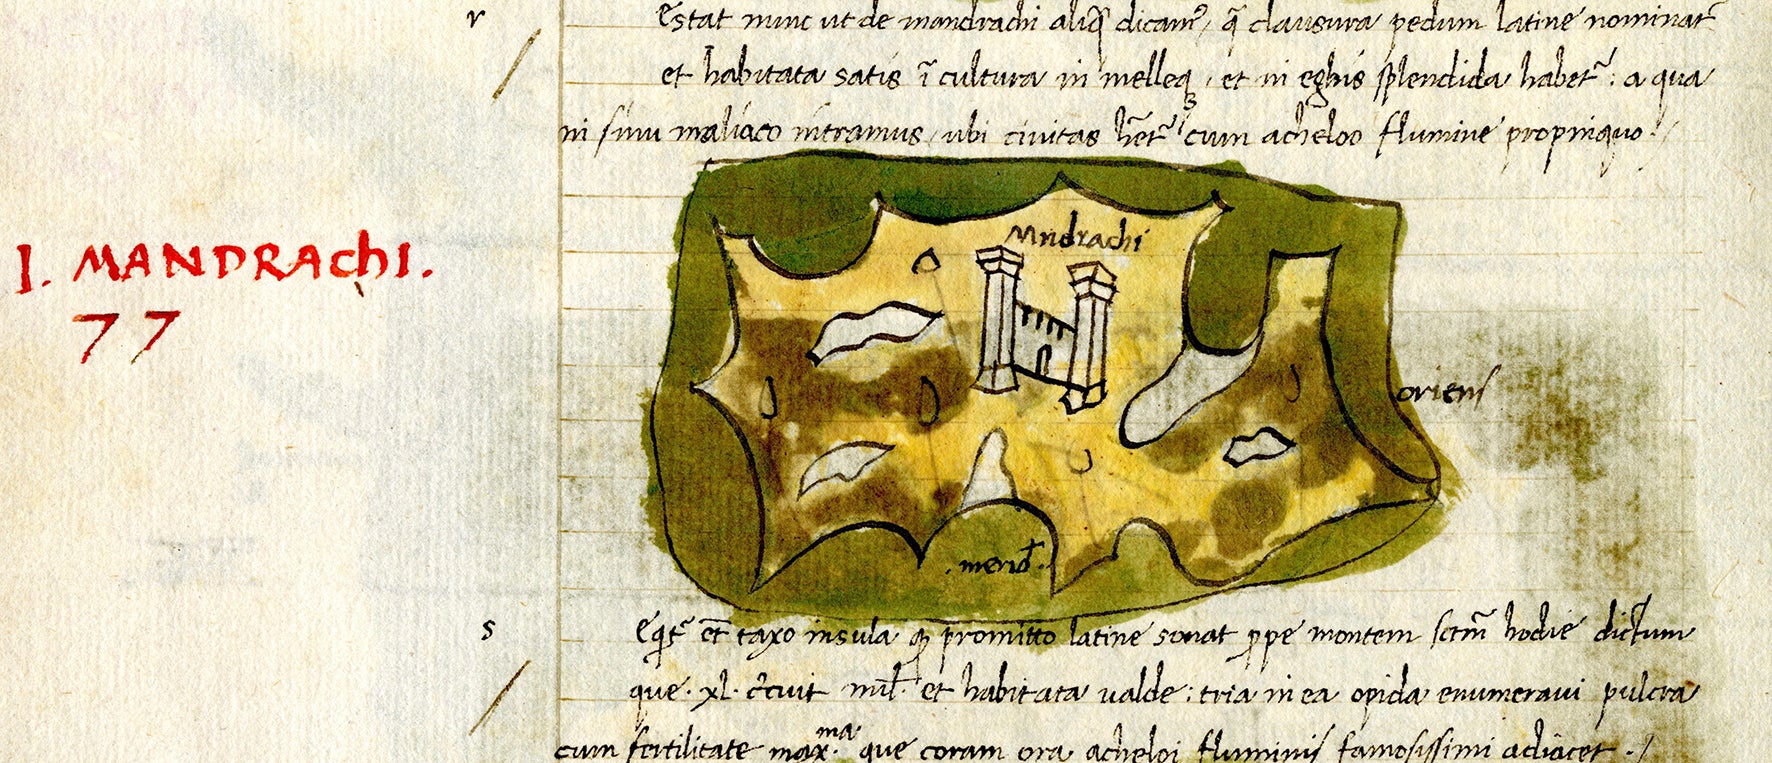 r
Estat nunc ut de mandrachi aliq̄ dicam⁹, q̄ clausura pedum latine nominat̃
et habitata satis ī cultura in melleq; et in eghis splendida habet̃: a qua
in sinu maliaco intramus ubi civitas hēt̃ cum acheloo flumine propinquo.
I. MANDRAChI.
77
Mndrachi
oriens
.merid̄.
s
Eqt̃ et̄ taxo insula q promitto latine sonat ppe montem sctm̄ hodie dictum
que .xl. circuit mil̃. et habitata valde: tria in ea opida enumeravi pulcra
cum fertilitate max.ma que coram ora acheloi fluminis famosissimi adiacet.